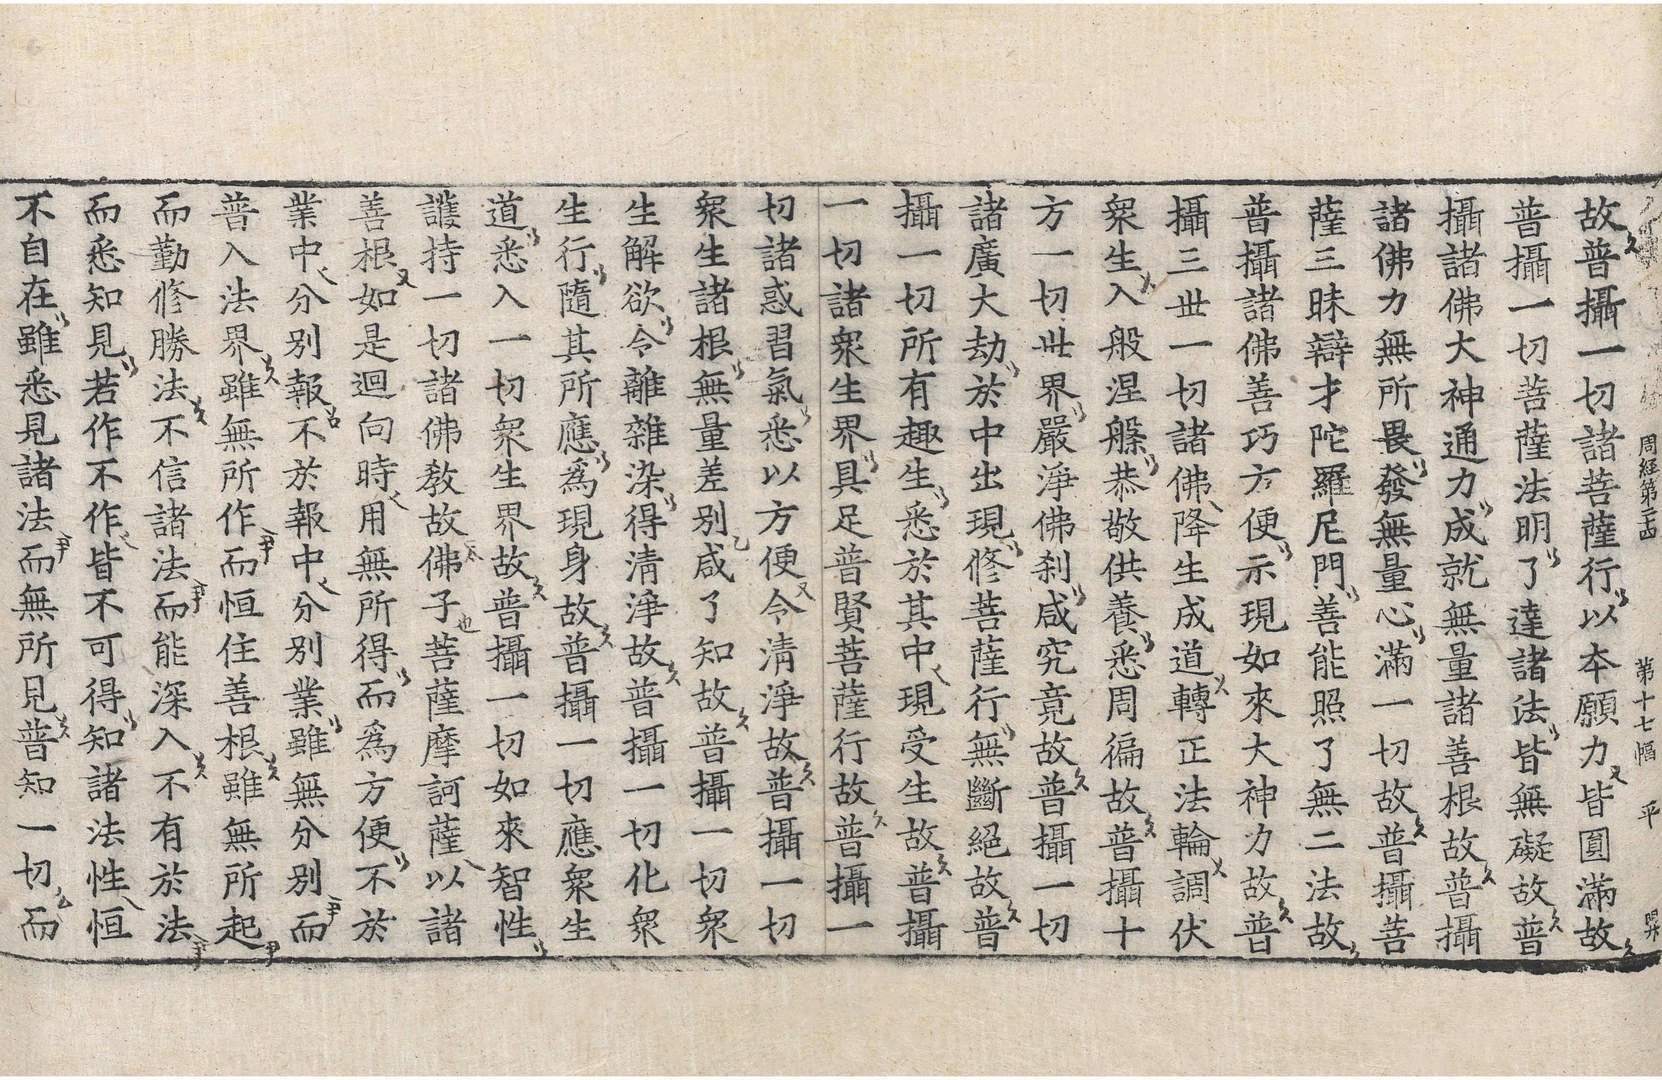 周經第二十四　第十七幅　平
故普攝一切諸菩薩行以本願力皆圓滿故
普攝一切菩薩法明了達諸法皆無礙故普
攝諸佛大神通力成就無量諸善根故普攝
諸佛力無所畏發無量心滿一切故普攝菩
薩三昧辯才陀羅尼門善能照了無二法故
普攝諸佛善巧方便示現如來大神力故普
攝三世一切諸佛降生成道轉正法輪調伏
衆生入般涅槃恭敬供養悉周徧故普攝十
方一切世界嚴淨佛刹咸究竟故普攝一切
諸廣大劫於中出現修菩薩行無斷絕故普
攝一切所有趣生悉於其中現受生故普攝
一切諸衆生界具足普賢菩薩行故普攝一
切諸惑習氣悉以方便令清淨故普攝一切
衆生諸根無量差别咸了知故普攝一切衆
生解欲令離雜染得清淨故普攝一切化衆
生行隨其所應爲現身故普攝一切應衆生
道悉入一切衆生界故普攝一切如來智性
護持一切諸佛教故佛子菩薩摩訶薩以諸
善根如是迴向時用無所得而爲方便不於
業中分别報不於報中分别業雖無分别而
普入法界雖無所作而恒住善根雖無所起
而勤修勝法不信諸法而能深入不有於法
而悉知見若作不作皆不可得知諸法性恒
不自在雖悉見諸法而無所見普知一切而